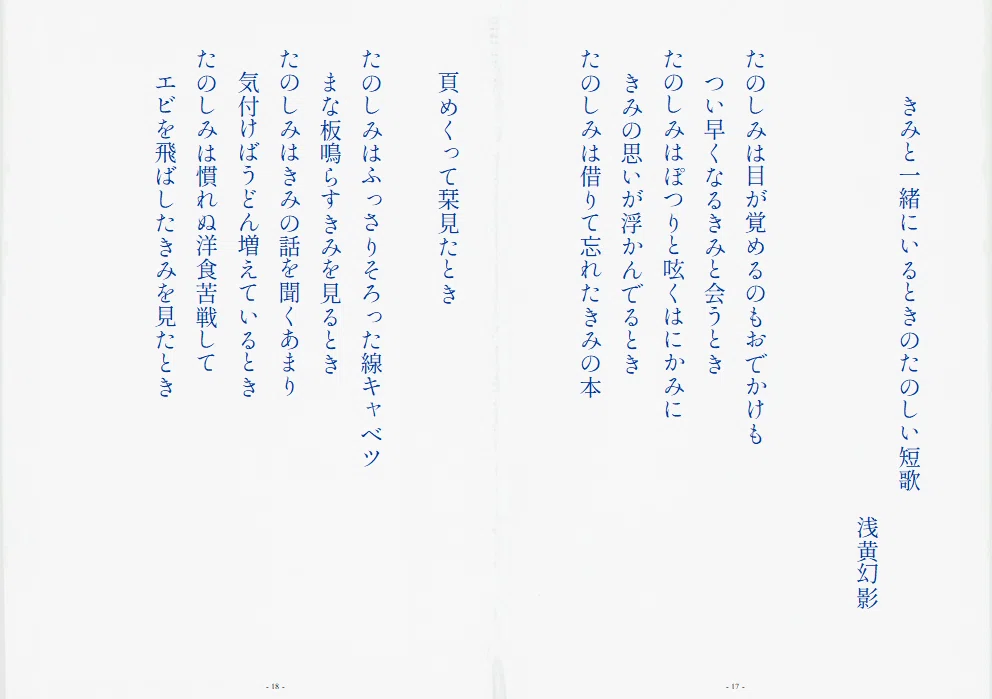 きみと一緒にいるときのたのしい短歌
浅黄幻影
たのしみは目が覚めるのもおでかけも
つい早くなるきみと会うとき
たのしみはぽつりと呟くはにかみに
きみの思いが浮かんでるとき
たのしみは借りて忘れたきみの本
- 17 -
頁めくって栞見たとき
たのしみはふっさりそろった線キャベツ
まな板鳴らすきみを見るとき
たのしみはきみの話を聞くあまり
気付けばうどん増えているとき
たのしみは慣れぬ洋食苦戦して
エビを飛ばしたきみを見たとき
- 18 -